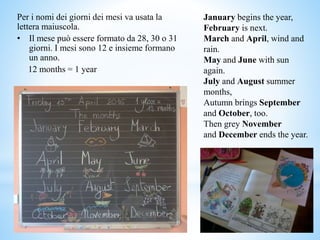 Per i nomi dei giorni dei mesi va usata la
lettera maiuscola.
• Il mese può essere formato da 28, 30 o 31
giorni. I mesi sono 12 e insieme formano
un anno.
12 months = 1 year
January begins the year,
February is next.
March and April, wind and
rain.
May and June with sun
again.
July and August summer
months,
Autumn brings September
and October, too.
Then grey November
and December ends the year.
Friday 15th April 2016 1 year = 12 months
The months
January February March
April May June
July August September
October November December